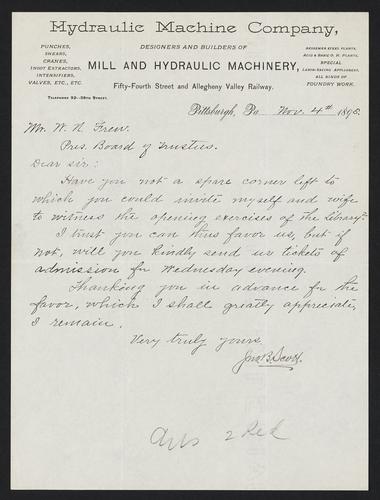 Hydraulic Machine Company,
PUNCHES,
SHEARS,
CRANES,
INGOT EXTRACTORS,
INTENSIFIERS,
VALVES, ETC., ETC.
DESIGNERS AND BUILDERS OF
MILL AND HYDRAULIC MACHINERY,
Fifty-Fourth Street and Allegheny Valley Railway.
BESSEMER STEEL PLANTS,
ACID & BASIC O. H. PLANTS,
SPECIAL
LABOR-SAVING APPLIANCES,
ALL KINDS OF
FOUNDRY WORK.
TELEPHONE
Pittsburgh, Pa Nov. 4th 1895
Mr. W. N. Frew.
Pres. Board of Trustees.
Dear sir:
Have you not a spare corner left to
which you could invite myself and wife
to witness the opening exercises of the Library?
I trust you can thus favor us, but if
not, will you kindly send us tickets of
admission for Wednesday evening.
Thanking you in advance for the
favor, which I shall greatly appreciate,
I remain.
Very truly yours,
Jno. B. Scott.
2 Red